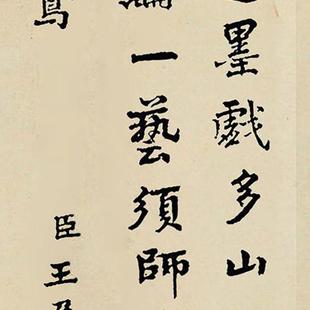 墨戲多山
一藝須師
臣王